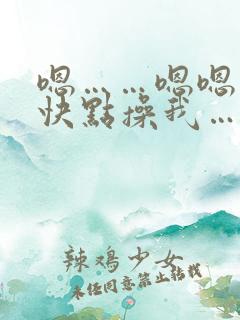 嗯……嗯嗯
快點操我…
辣鸡少女
未经同意禁止转载